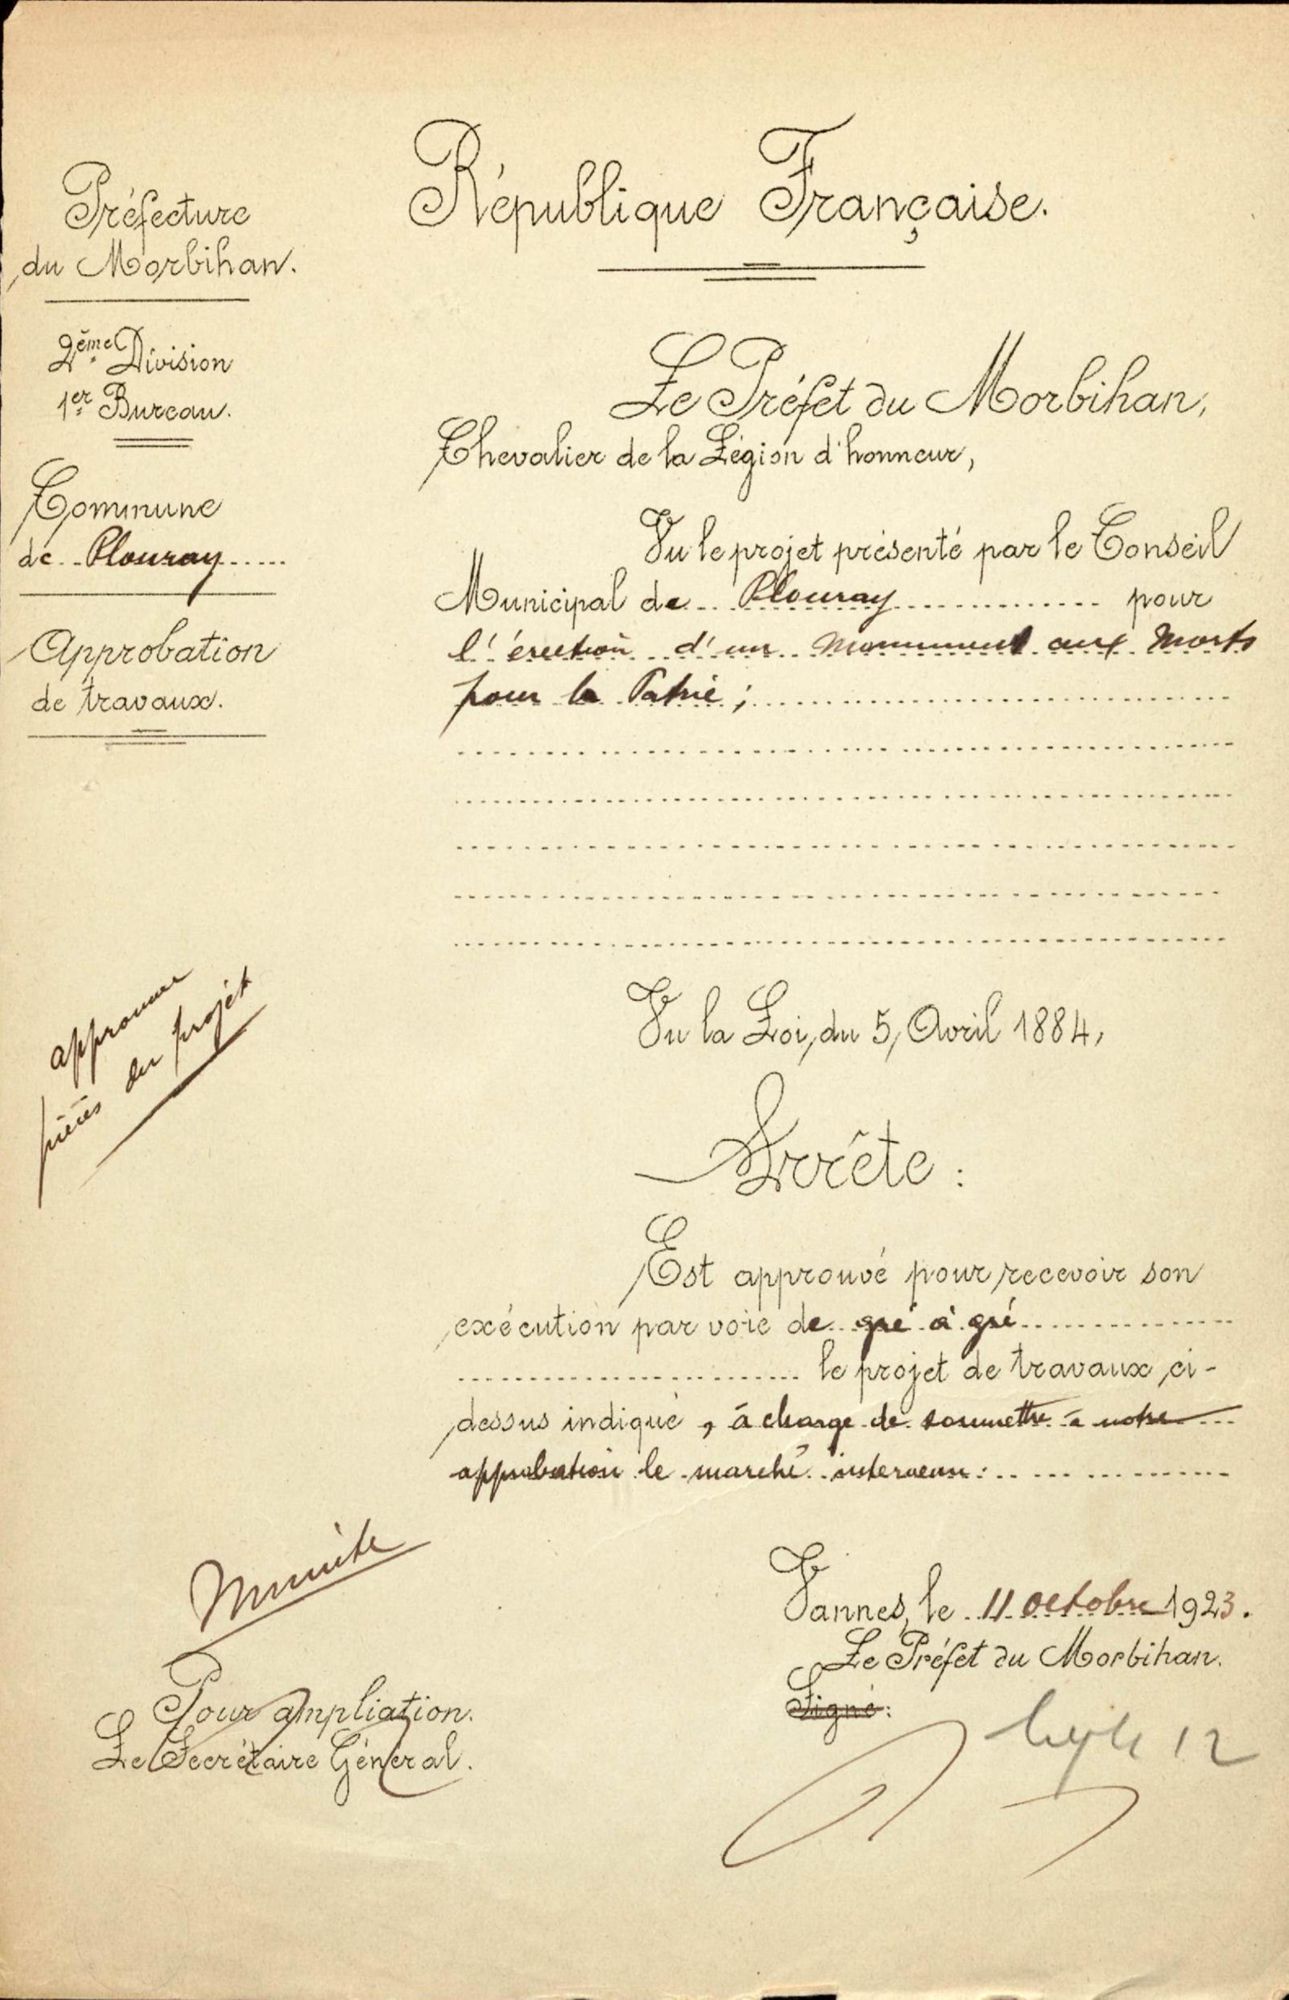 République Française.
Préfecture
du Morbihan.
2ème Division
1er Bureau.
Commune
de Plouray
Approbation
de travaux.
Le Préfet du Morbihan,
Chevalier de la Légion d'honneur,
Vu le projet présenté par le Conseil
Municipal de Plouray pour
l'érection d'un Monument aux Morts
pour la Patrie ;
approuver
pièces du projet
Vu la Loi du 5 Avril 1884,
Arrête :
Est approuvé pour recevoir son
exécution par voie de gré à gré
le projet de travaux ci-
dessus indiqué, à charge de soumettre à notre
approbation le marché intervenu.
Vannes, le 11 octobre 1923.
Le Préfet du Morbihan.
Signé :
12
Minute
Pour ampliation.
Le Secrétaire Général.